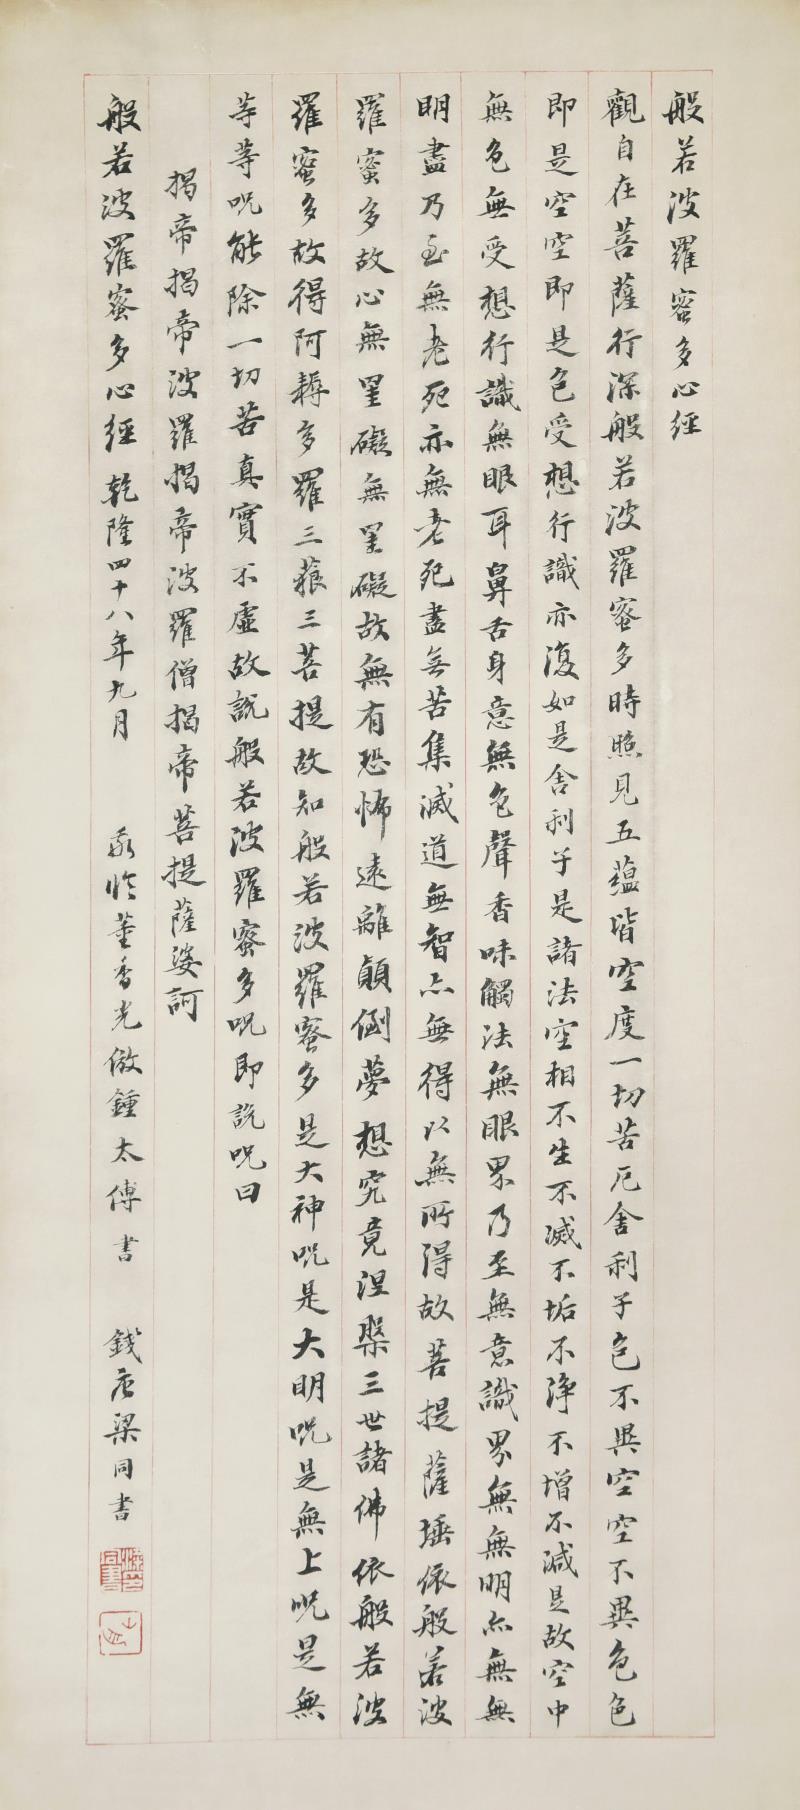 般若波羅蜜多心經
觀自在菩薩行深般若波羅蜜多時照見五蘊皆空度一切苦厄舍利子色不異空空不異色色
即是空空即是色受想行識亦復如是舍利子是諸法空相不生不滅不垢不淨不增不減是故空中
無色無受想行識無眼耳鼻舌身意無色聲香味觸法無眼界乃至無意識界無無明亦無無
明盡乃至無老死亦無老死盡無苦集滅道無智亦無得以無所得故菩提薩埵依般若波
羅蜜多故心無罣礙無罣礙故無有恐怖遠離顛倒夢想究竟涅槃三世諸佛依般若波
羅蜜多故得阿耨多羅三藐三菩提故知般若波羅蜜多是大神呪是大明呪是無上呪是無
等等呪能除一切苦真實不虛故說般若波羅蜜多呪即說呪曰
揭帝揭帝波羅揭帝波羅僧揭帝菩提薩婆訶
般若波羅蜜多心經 乾隆四十八年九月 敬臨董香光倣鍾太傅書 錢唐梁同書